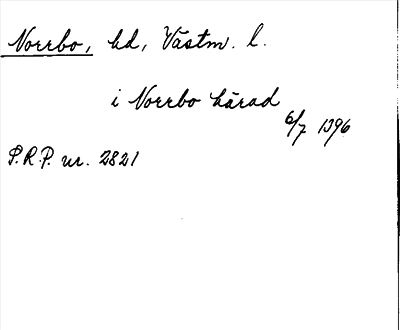 Norrbo, hd, Västm. l.
i Norrbo härad
6/7 1396
S.R.P. nr. 2821